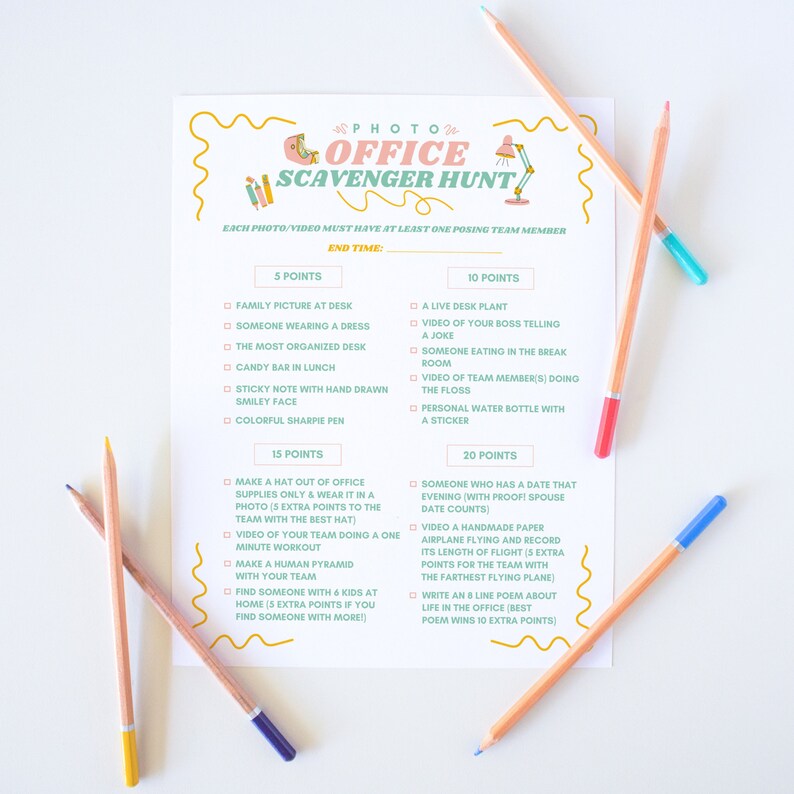 PHOTO
OFFICE
SCAVENGER HUNT
EACH PHOTO/VIDEO MUST HAVE AT LEAST ONE POSING TEAM MEMBER
END TIME:
5 POINTS
FAMILY PICTURE AT DESK
SOMEONE WEARING A DRESS
THE MOST ORGANIZED DESK
CANDY BAR IN LUNCH
STICKY NOTE WITH HAND DRAWN
SMILEY FACE
COLORFUL SHARPIE PEN
10 POINTS
A LIVE DESK PLANT
VIDEO OF YOUR BOSS TELLING
A JOKE
SOMEONE EATING IN THE BREAK
ROOM
VIDEO OF TEAM MEMBER(S) DOING
THE FLOSS
PERSONAL WATER BOTTLE WITH
A STICKER
15 POINTS
MAKE A HAT OUT OF OFFICE
SUPPLIES ONLY & WEAR IT IN A
PHOTO (5 EXTRA POINTS TO THE
TEAM WITH THE BEST HAT)
VIDEO OF YOUR TEAM DOING A ONE
MINUTE WORKOUT
MAKE A HUMAN PYRAMID
WITH YOUR TEAM
FIND SOMEONE WITH 6 KIDS AT
HOME (5 EXTRA POINTS IF YOU
FIND SOMEONE WITH MORE!)
20 POINTS
SOMEONE WHO HAS A DATE THAT
EVENING (WITH PROOF! SPOUSE
DATE COUNTS)
VIDEO A HANDMADE PAPER
AIRPLANE FLYING AND RECORD
ITS LENGTH OF FLIGHT (5 EXTRA
POINTS FOR THE TEAM WITH
THE FARTHEST FLYING PLANE)
WRITE AN 8 LINE POEM ABOUT
LIFE IN THE OFFICE (BEST
POEM WINS 10 EXTRA POINTS)